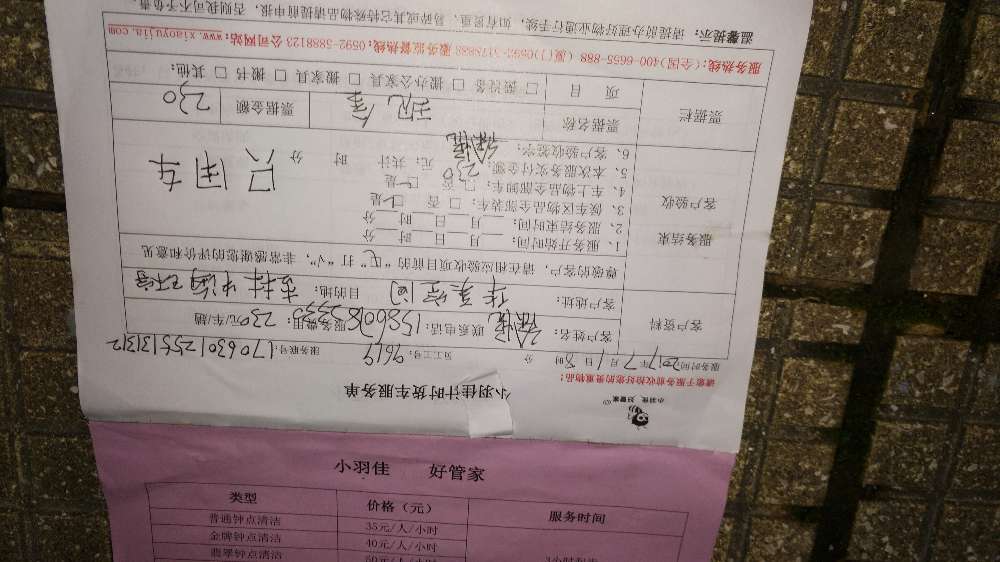 小羽佳 好管家
小羽佳计时货车服务单
请勿于服务前收拾好您的贵重物品:
服务时间 2017年7月1日8时 分 员工工号: 9619 服务联号: 170630125513132
客户资料
客户姓名: 联系电话: 服务费用: 230元/车/趟
客户地址: 华美空间 目的地:
尊敬的客户, 请在相应验收项目前的“□”打“√”, 非常感谢您的评价和意见
服务结束
客户验收
1、服务开始时间: 月 日 时 分
2、服务结束时间: 月 日 时 分
3、候车区物品全部装车: □ 否 □ 是
4、车上物品全部卸车: □ 否 □ 是
5、本次服务实付金额: 230 元; 共计 时 分
6、客户验收签字:
只用车
票据栏
票据名称 现金 票据金额 230
项 目 □ 搬设备 □ 搬办公家具 □ 搬家具 □ 搬书 □ 其他:
服务热线:(全国)400-6655-888 (厦门)0592-3178888 服务监督热线:0592-5888123 公司网站: www.xiaoyujia.com
温馨提示: 请提前办理好物业进行手续, 如有贵重、易碎或其它特殊物品请提前申报, 否则我司不予负责.
小羽佳 好管家
类型 价格(元) 服务时间
普通钟点清洁 35元/人/小时
金牌钟点清洁 40元/人/小时
翡翠钟点清洁 50元/人/小时